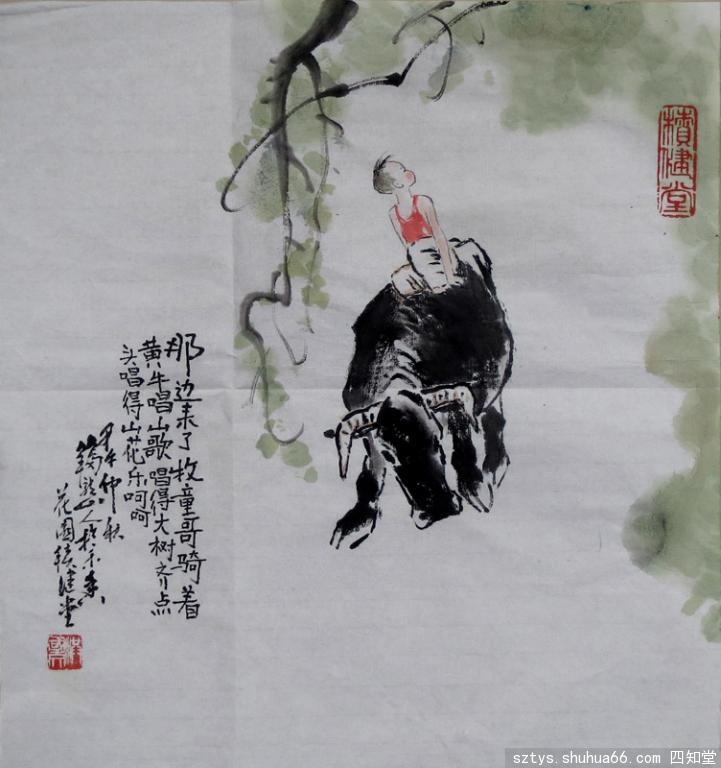 積健堂
那边来了牧童哥骑着
黄牛唱山歌唱得大树齐点
头唱得山花乐呵呵
甲午仲秋
山人於
花园積健堂
sztys.shuhua66.com 四知堂